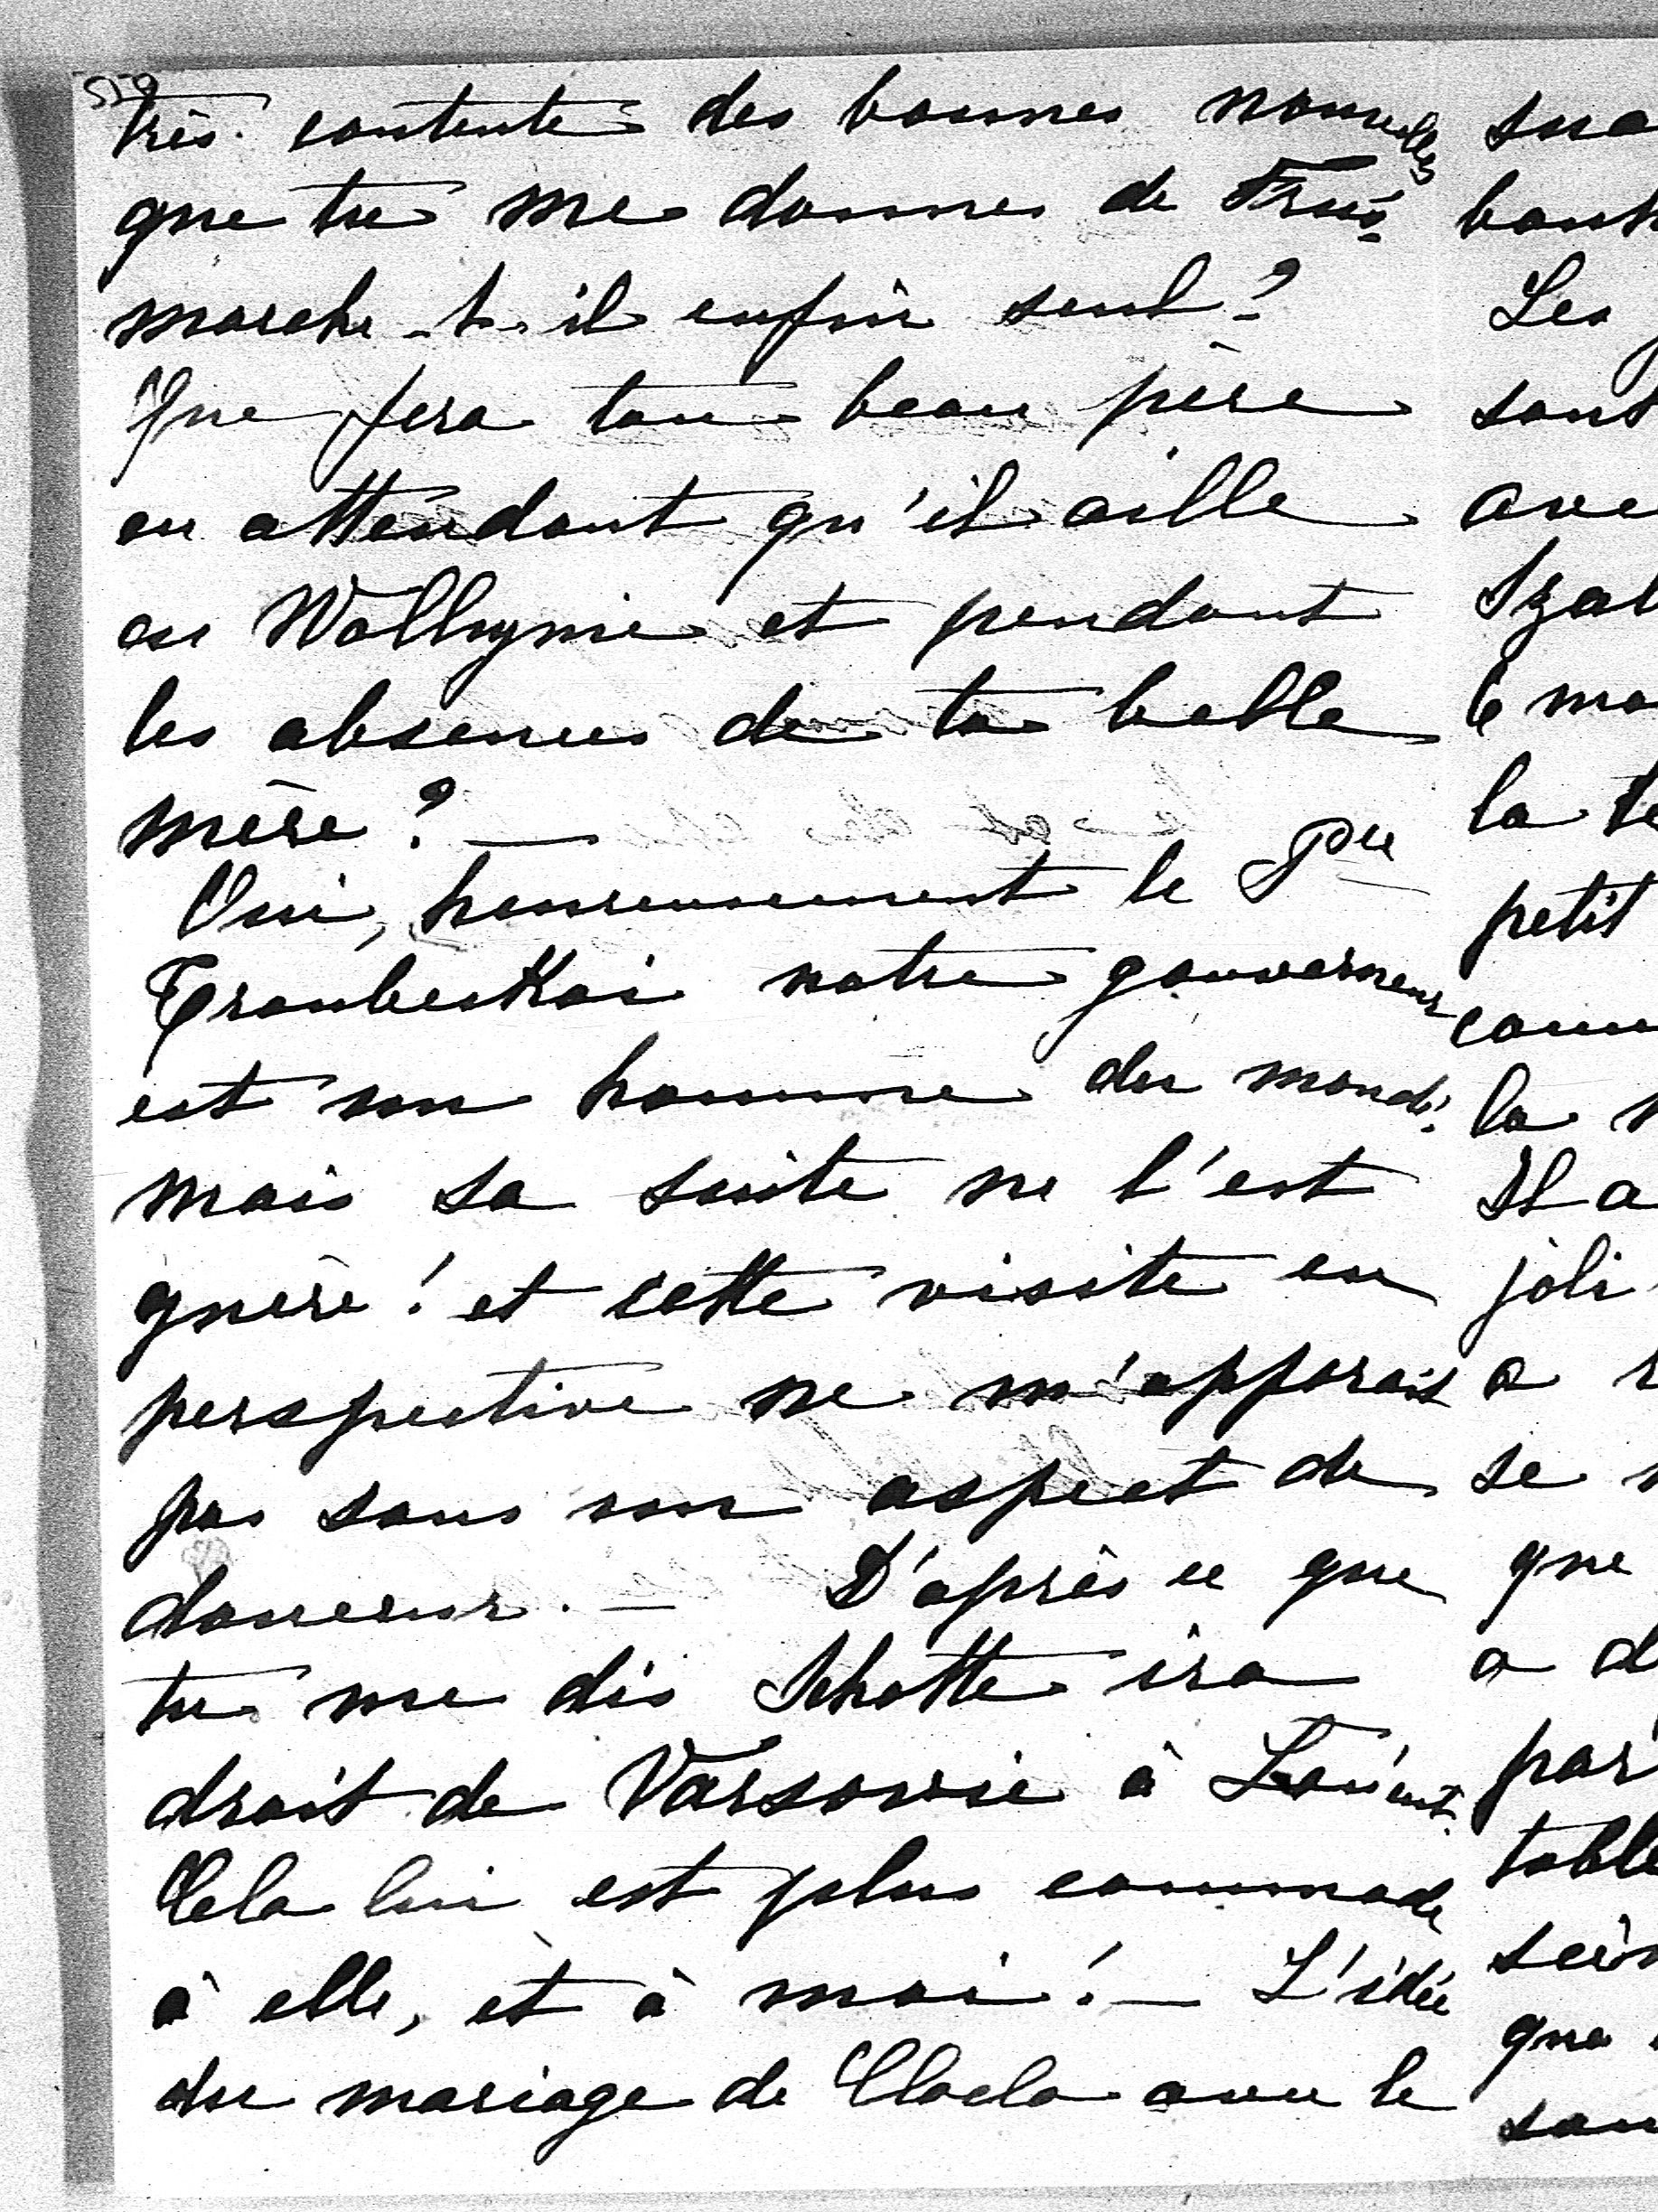 très contente des bonnes nouvelles
que tu me donnes de
marche-t-il enfin seul?
Que fera ton beau père
en attendant qu'il aille
en Wolhynie et pendant
les absences de ta belle
mère? —
Oui, heureusement le Pce
Troubeskoi notre gouverneur
est un homme du monde.
mais sa suite ne l'est
guère! et cette visite en
perspective ne m'apparait
pas sous son aspect de
douceur. — D'après ce que
tu me dis Schotte ira
droit de Varsovie à
Cela lui est plus commode
à elle, et à moi! — L'idée
du mariage de Cloclo avec le
Les
sont
ave
la te
petit
la
Il a
joli
a
se
que
a d
par
table
que